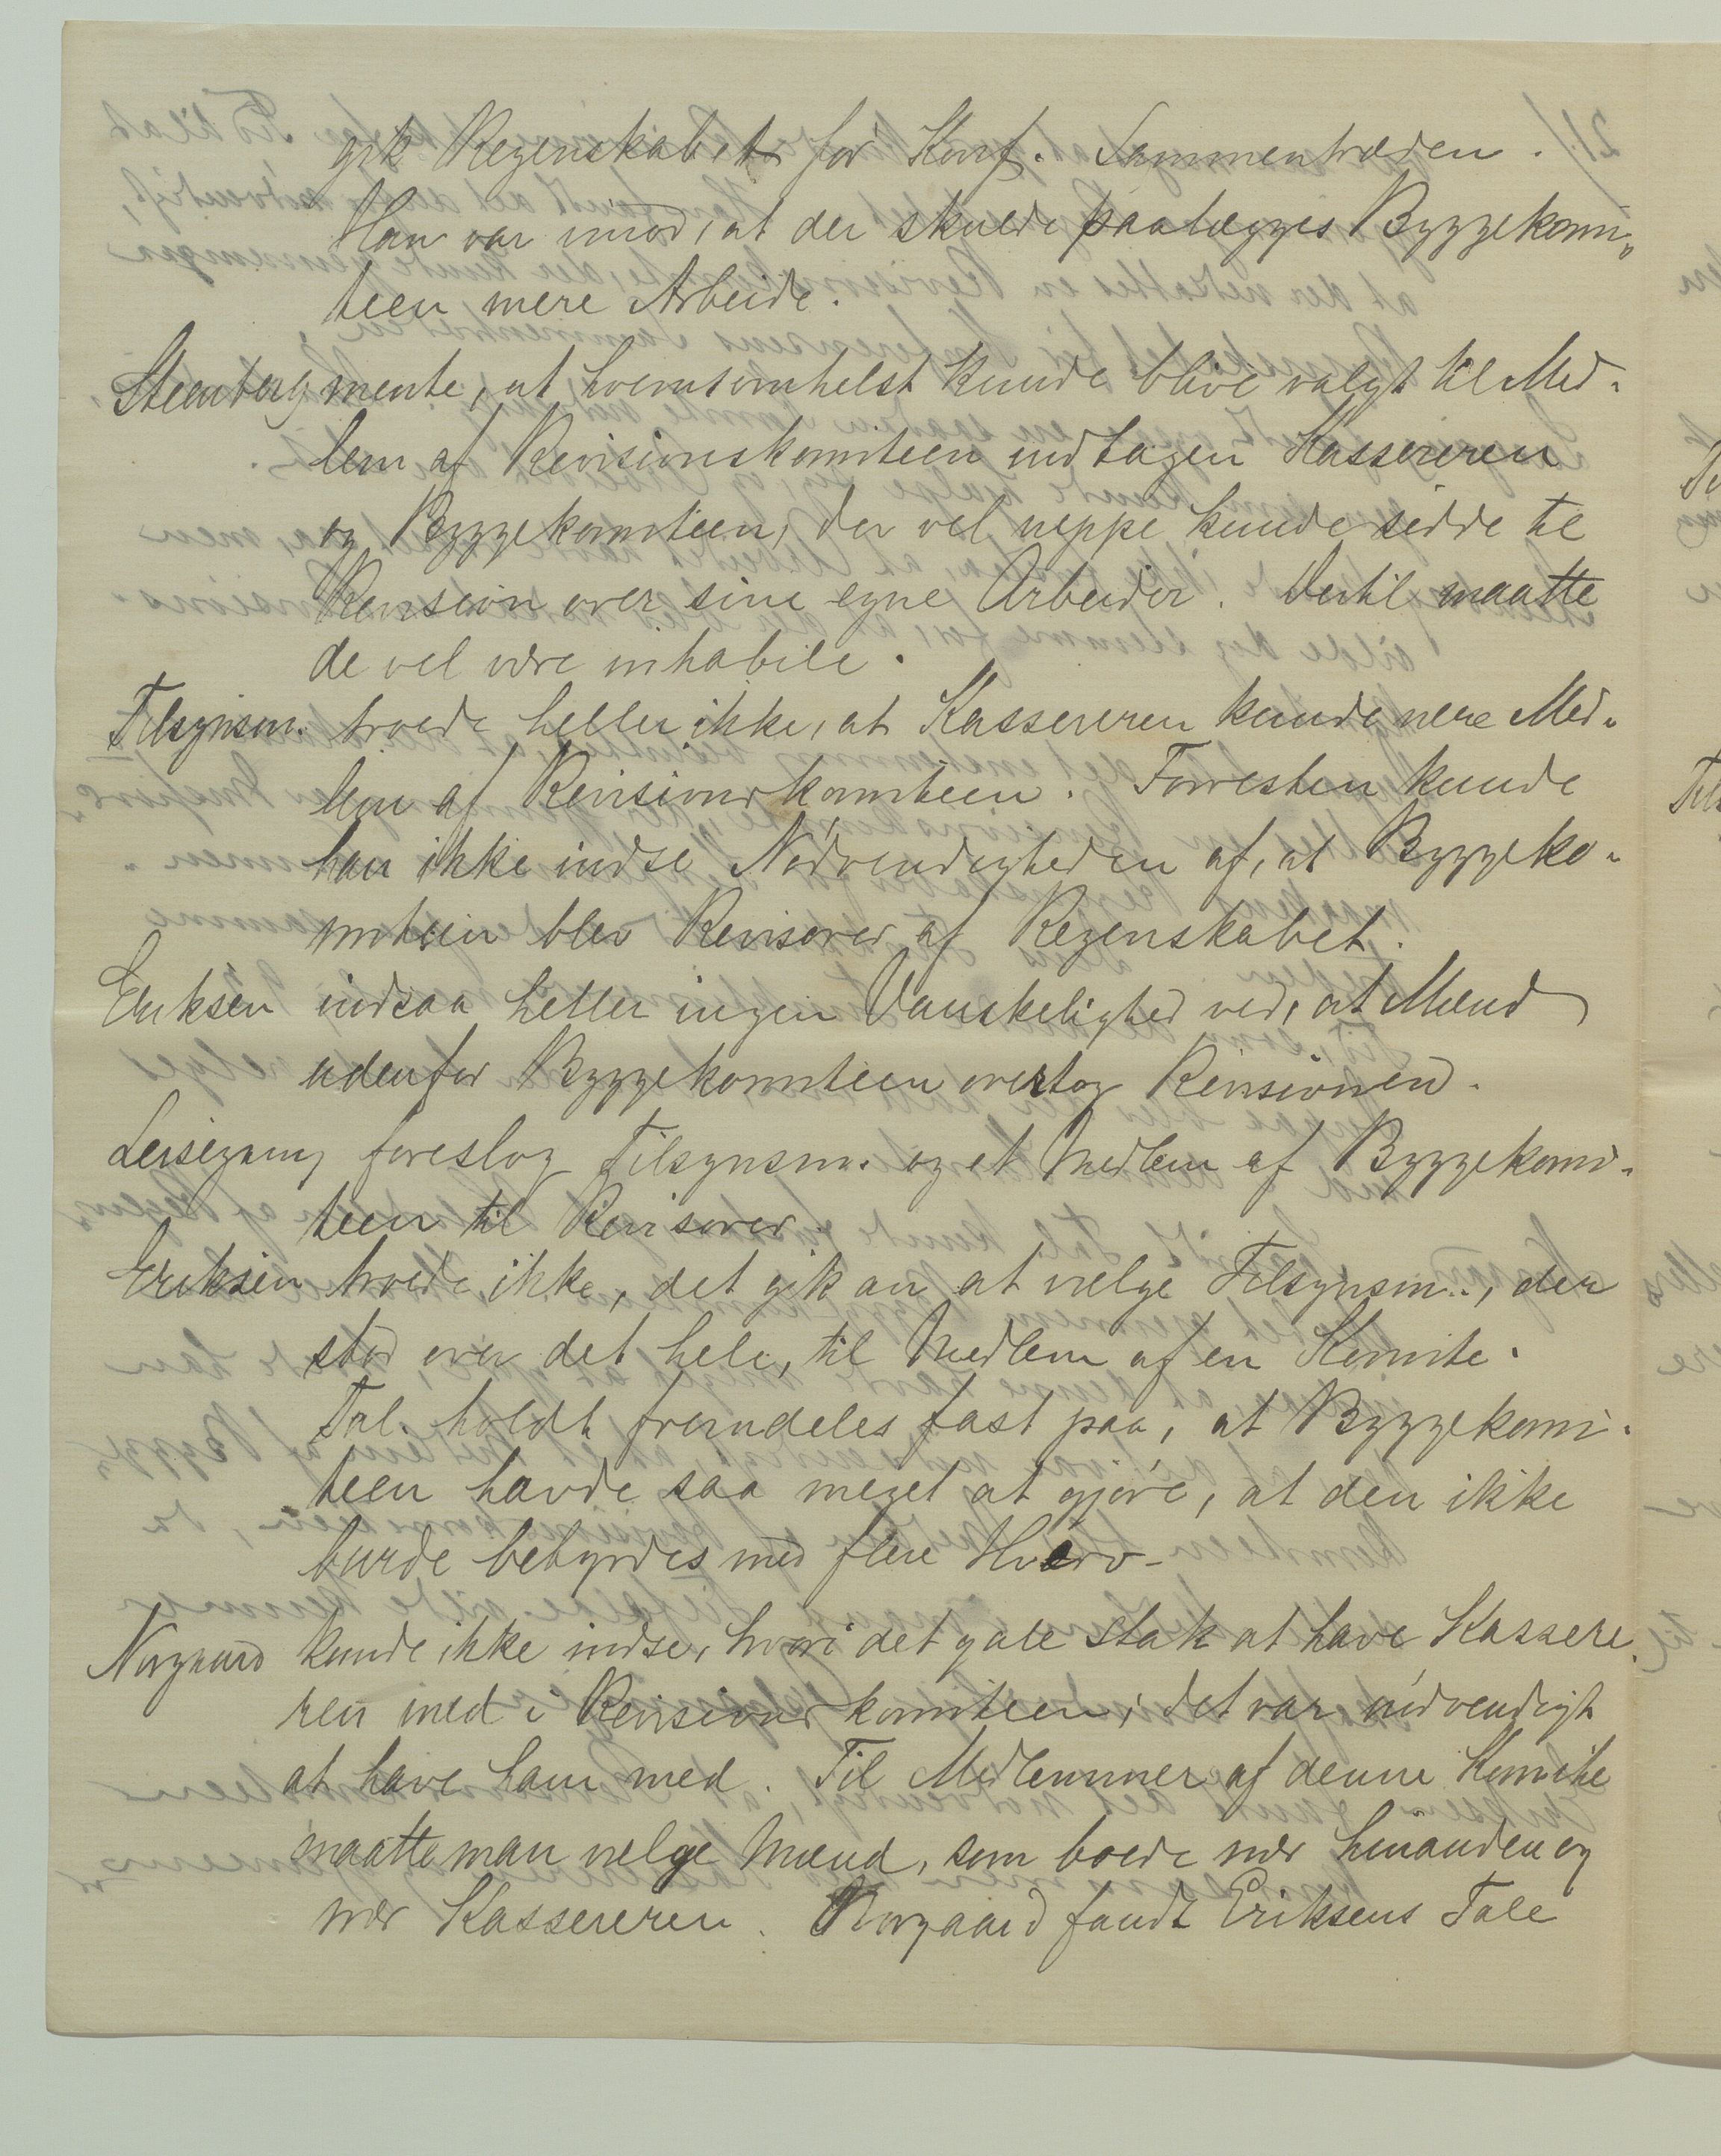 gik Regenskabet før Konf. Sammentræden.
Han var imod, at der skulde paalægges Byggekomi„
teen mere Arbeide.
Steenberg mente, at hvemsomhelst kunde blive valgt til Med-
lem af Revisionskomiteen undtagen Kassereren
og Byggekomiteen, der vel neppe kunde sidde til
Revision over sine egne Arbeider. Dertil maatte
de vel være inhabile.
Tilsynsm. troede heller ikke, at Kassereren kunde være Med-
lem af Revisionskomiteen. Forresten kunde
han ikke indse Nødvendigheden af, at Byggeko-
miteen blev Revisorer af Regenskabet.
Eriksen indsaa heller ingen Vanskelighed ved, at Mænd
udenfor Byggekomiteen overtog Revisionen.
Leisegang foreslog Tilsynsm. og et Medlem af Byggekomi-
teen til Revisorer.
Eriksen troede ikke, det gik an at vælge Tilsynsm., der
stod over det hele, til Medlem af en Komite.
Tal. holdt fremdeles fast paa, at Byggekomi-
teen havde saa meget at gjøre, at den ikke
burde bebyrdes med flere Hverv-
Norgaard kunde ikke indse, hvori det gale stak at have Kassere-
ren med i Revisionskomiteen; det var nødvendigt
at have ham med. Til Medlemmer af denne Komite
maatte man vælge Mænd, som boede nær hinanden og
nær Kassereren. Norgaard fandt Eriksens Tale